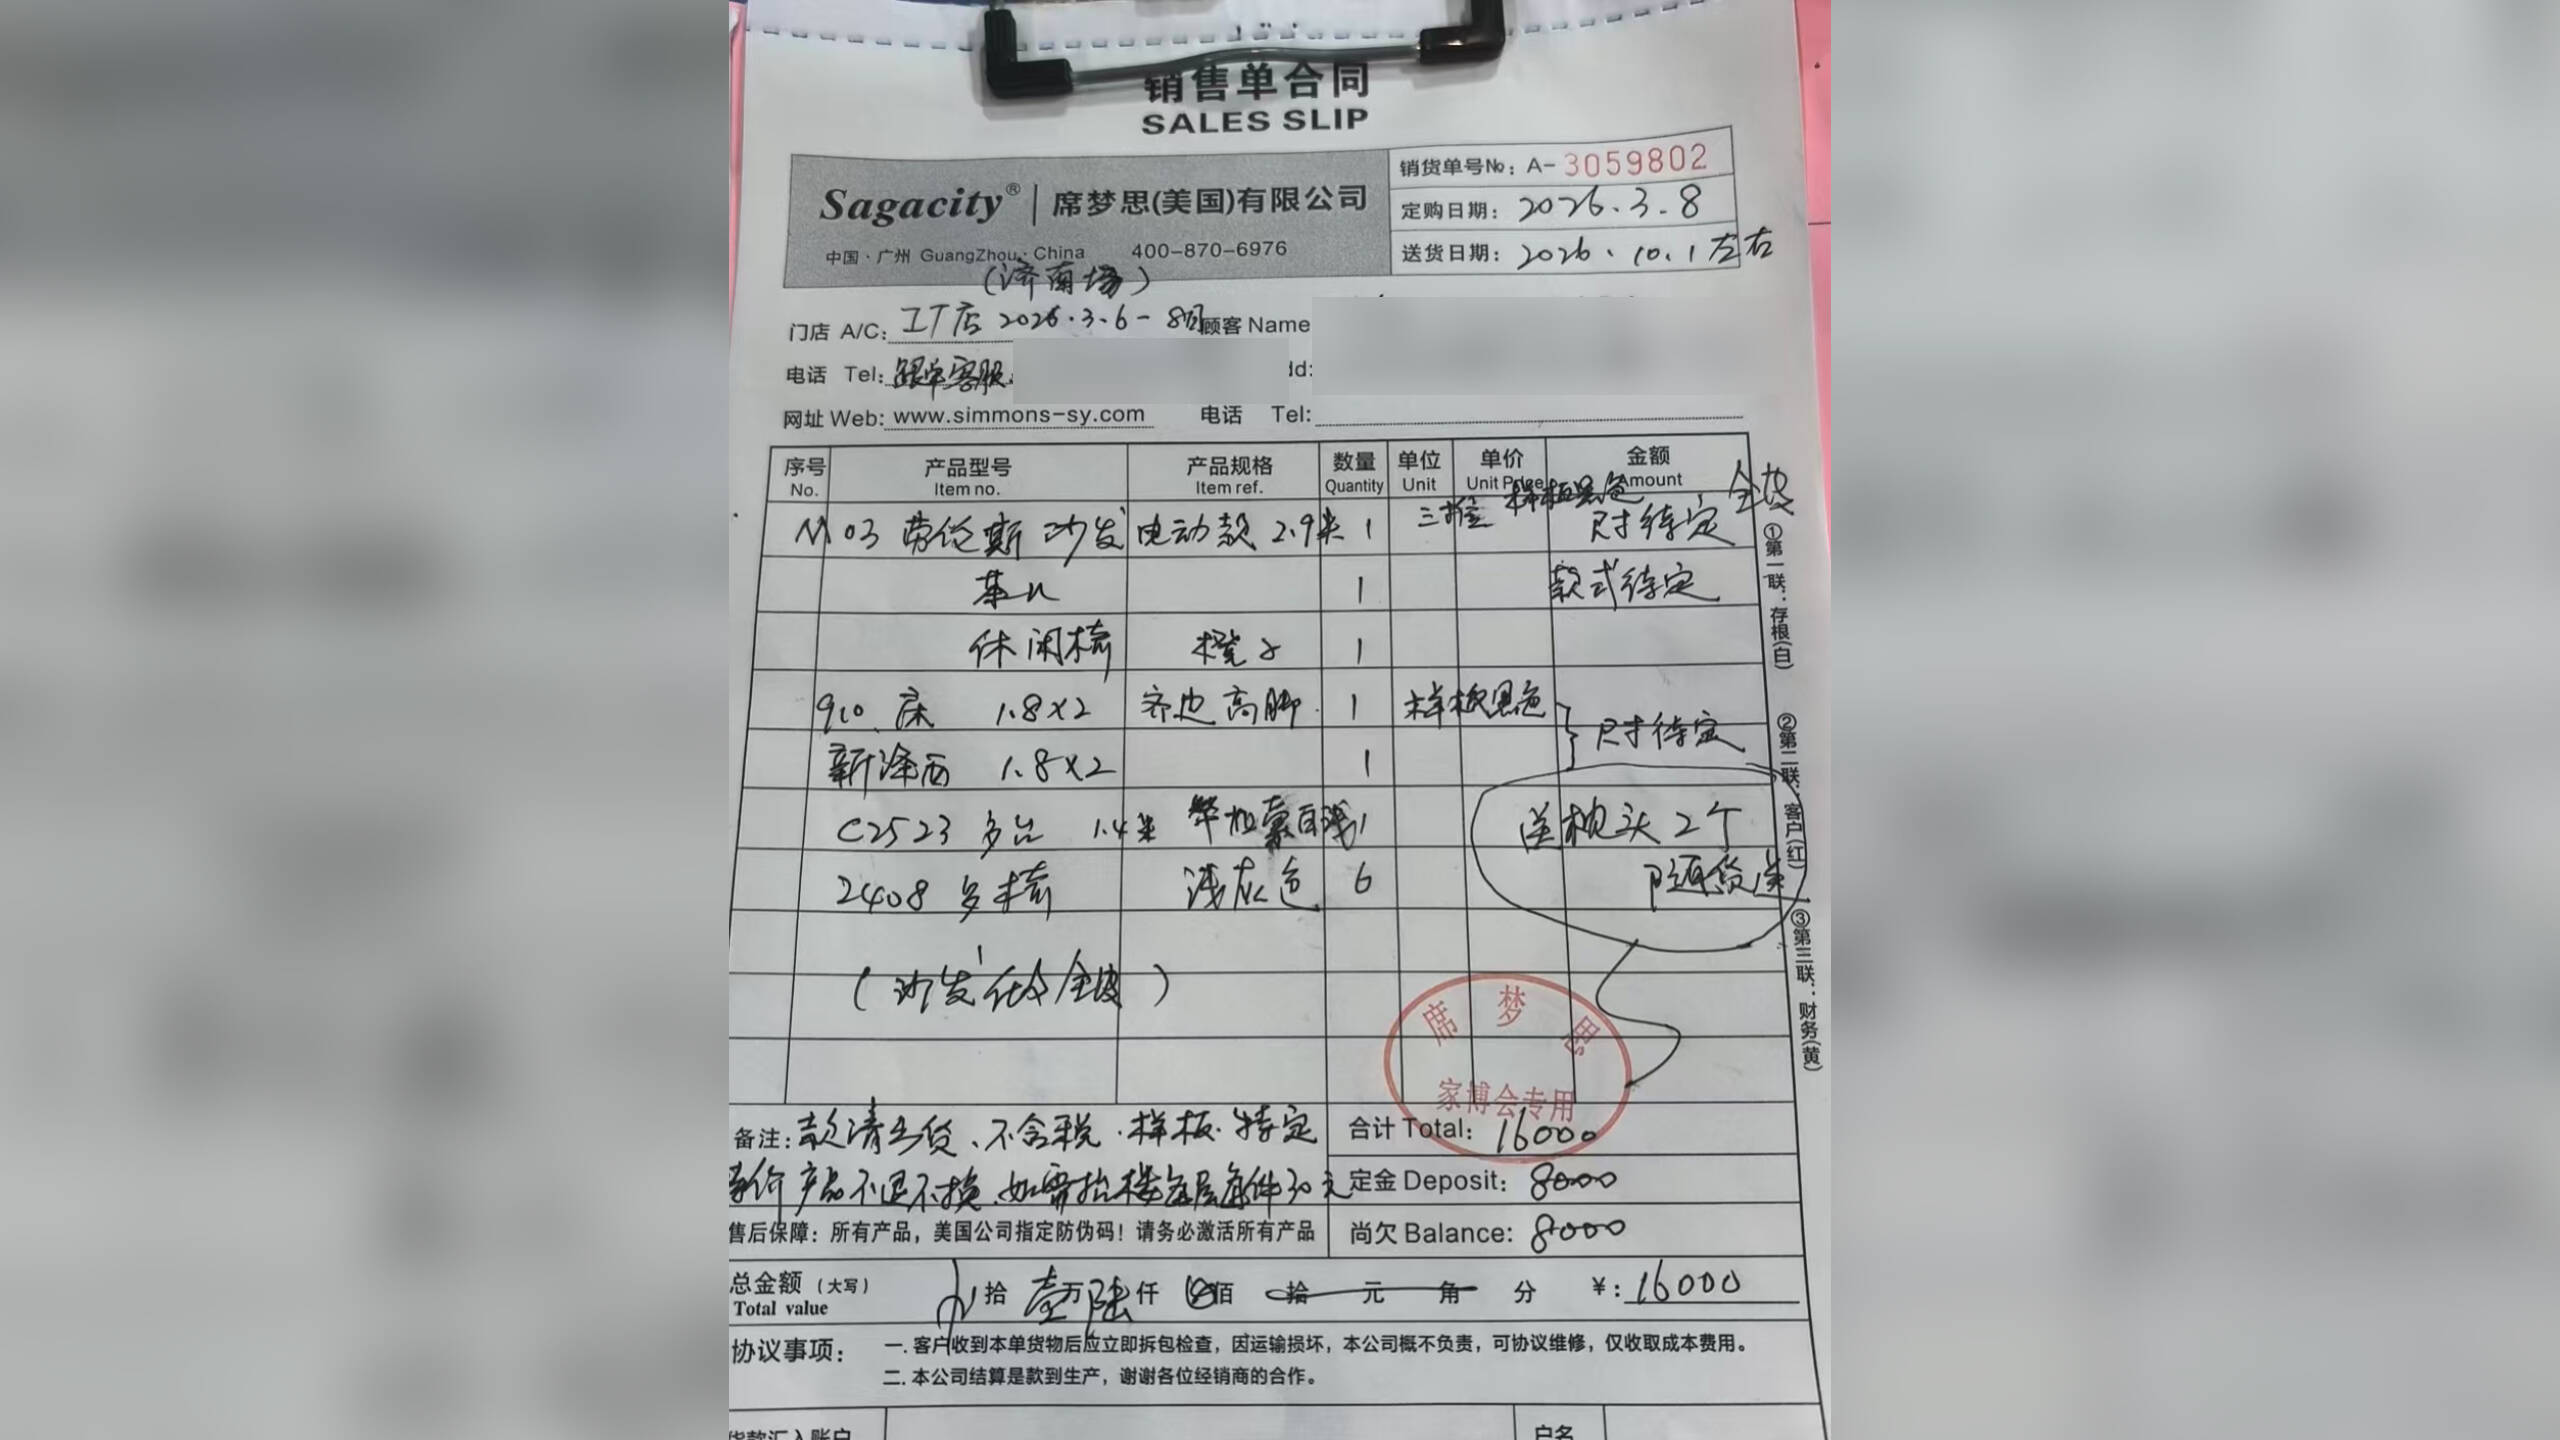 销售单合同
SALES SLIP
Sagacity® | 席梦思(美国)有限公司
中国·广州 GuangZhou·China 400-870-6976
(济南场)
销货单号№: A-3059802
定购日期: 2026.3.8
送货日期: 2026.10.1左右
门店 A/C: 工厂店 2026.3.6-8日 顾客 Name
电话 Tel: 跟单客服 dd:
网址 Web: www.simmons-sy.com 电话 Tel:
序号 产品型号 产品规格 数量 单位 单价 金额
No. Item no. Item ref. Quantity Unit Unit Price Amount
样板黑色 全皮
M03 劳伦斯 沙发 电动款 2.9米 1 三 尺寸待定
茶几 1 款式待定
休闲椅 橙 1
910 床 1.8×2 齐边高脚 1 样板黑色
尺寸待定
新泽西 1.8×2 1
C2523 多台 1.4米 1 送枕头2个
2408 多椅 浅灰色 6 随货送
(沙发 全皮)
席梦思
家博会专用
备注: 款清出货、不含税.样板.特定
特价产品不退不换.如需抬楼每层每件30元
合计 Total: 16000
定金 Deposit: 8000
尚欠 Balance: 8000
售后保障: 所有产品，美国公司指定防伪码！请务必激活所有产品
总金额（大写） 拾 壹万 陆仟 佰 拾 元 角 分 ¥: 16000
Total value
协议事项: 一. 客户收到本单货物后应立即拆包检查，因运输损坏，本公司概不负责，可协议维修，仅收取成本费用。
二. 本公司结算是款到生产，谢谢各位经销商的合作。
货款汇入账户 户名
①第一联：存根(白) ②第二联：客户(红) ③第三联：财务(黄)